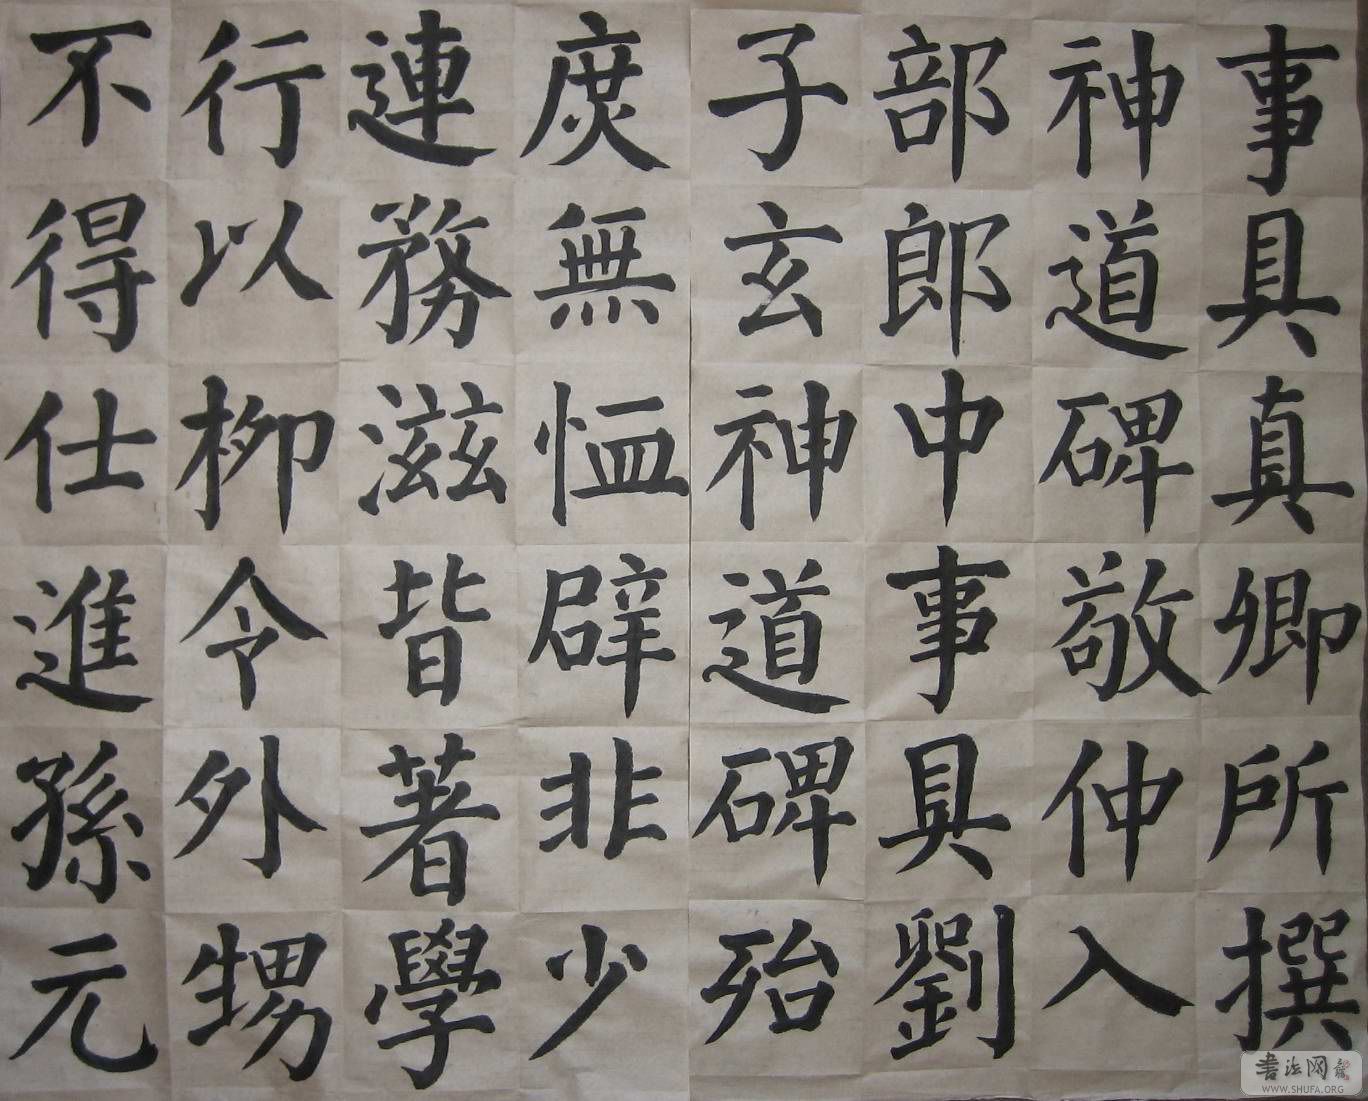 事具真卿所撰
神道碑敬仲入
部郎中事具劉
子玄神道碑殆
庶無恤辟非少
連務滋皆著學
行以柳令外甥
不得仕進孫元
書法网
WWW.SHUFA.ORG